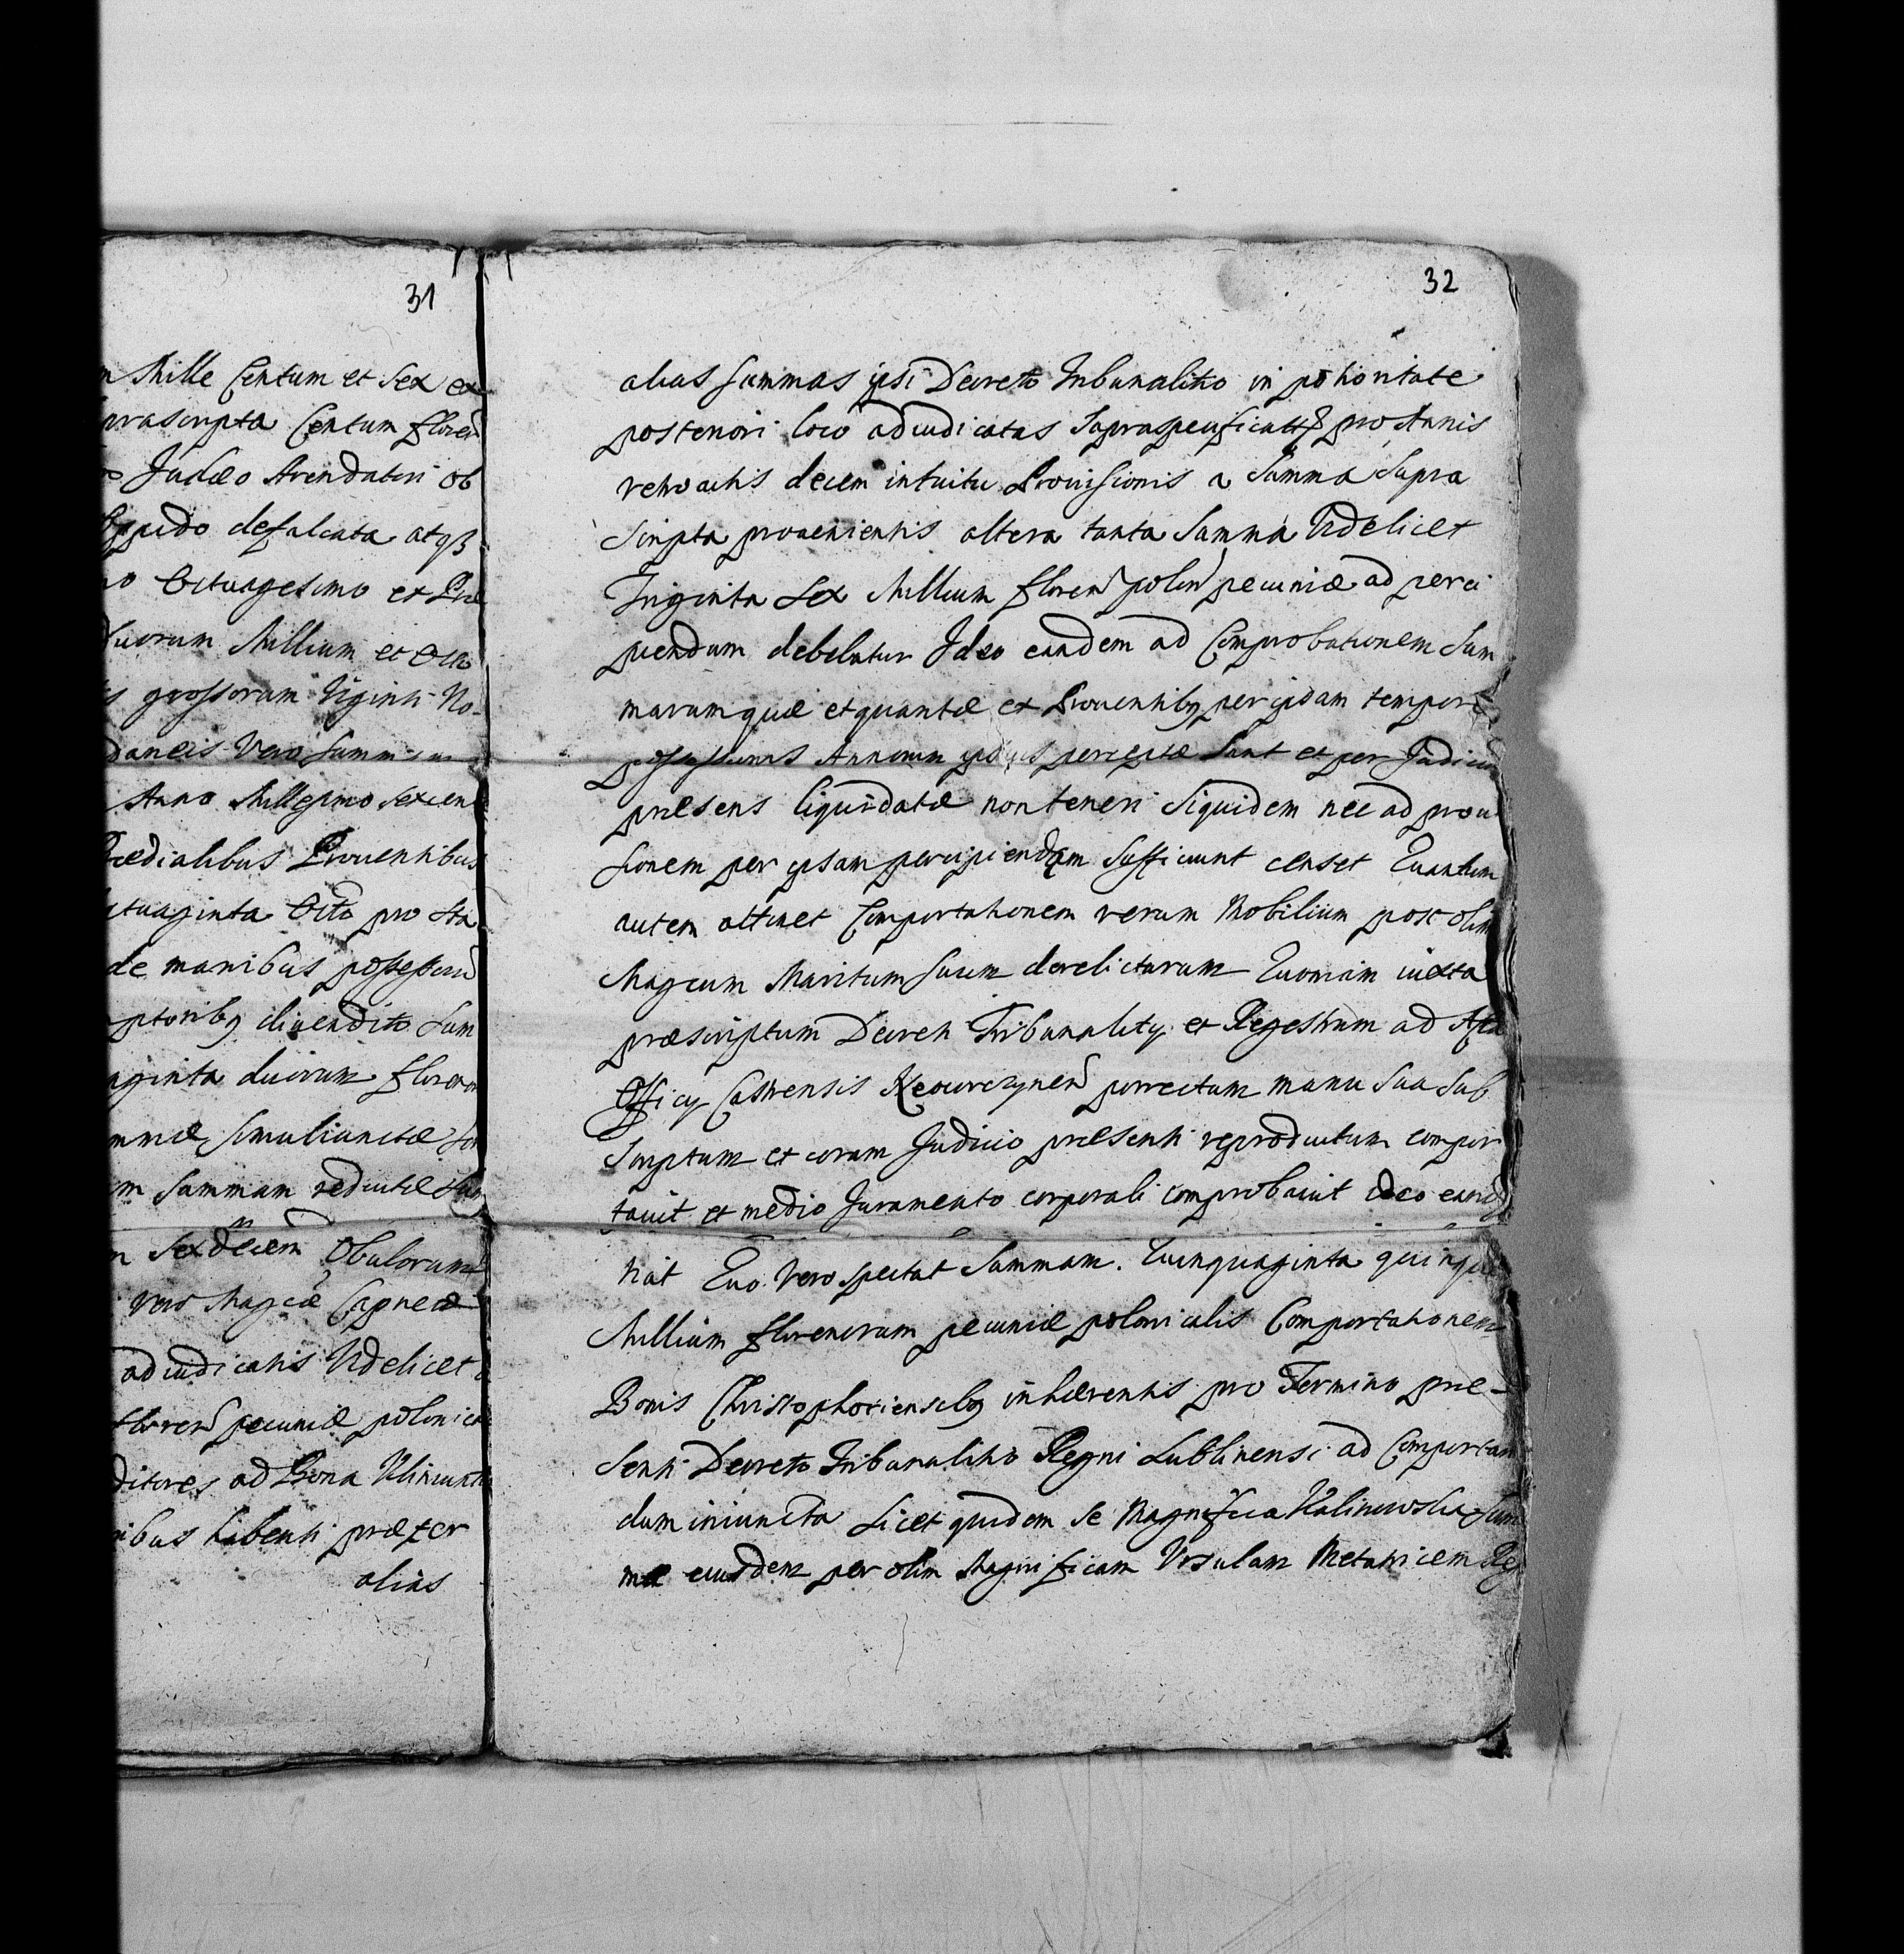 31
Mille Centum et Sex ex
prascripta Centum floren
Judæo Arendatori ob
defalcata atqз
Octuagesimo et
Millium et Octo
grossorum Viginti No-
daneis Vero Summis
Anno Millesimo Sexcen
Prædialibus Prouentibus
Octo pro
de manibus possessorum
diuendito Sum
duorum floren
simuliunctæ
Summam redactæ
Sexdecem Obulorum
Vero Magcæ Capneæ
adiudicatis Videlicet
floren pecuniæ polonica
ad Bona
habenti præter
alias
32
alias summas ipsi Decreto Tribunalitio in potioritate
posteriori loco adiudicatas Supraspecificatas pro Annis
retroactis decem intuitu Prouisionis a Summa Supra
scripta prouenientis altera tanta Summa Videlicet
Triginta Sex Millium floren polon pecuniæ ad perci
piendum debebatur Ideo eandem ad Comprobationem Sum
marum quæ et quantæ ex Prouentibq per ipsam tempore
possessionis Annorum perceptæ Sunt et per Judicium
præsens liquidatæ non teneri Siquidem nec ad proui
sionem per ipsam percipiendam Sufficiunt censet Quantum
autem attinet Comportationem rerum Mobilium post olim
Magcum Maritum Suum derelictarum Quoniam iuxta
præscriptum Decreti Tribunality et Regestrum ad Acta
Officy Castrensis porrectum manu Sua Sub
Scriptum et coram Judicio præsenti reproductum compor
tauit et medio Juramento corporali comprobauit ideo eand
Quo Vero spectat Summam. Quinquaginta quinque
Millium florenorum pecuniæ polonicalis Comportationem
Bonis Christophoriensibq inhærentis pro Termino præ-
senti Decreto Tribunalitio Regni Lublinensi ad Comportan
dum iniuncta Licet quidem se Magnifica Kalinowska Sum
mæ eiusdem per olim Magnificam Vrsulam Metatricem Reg